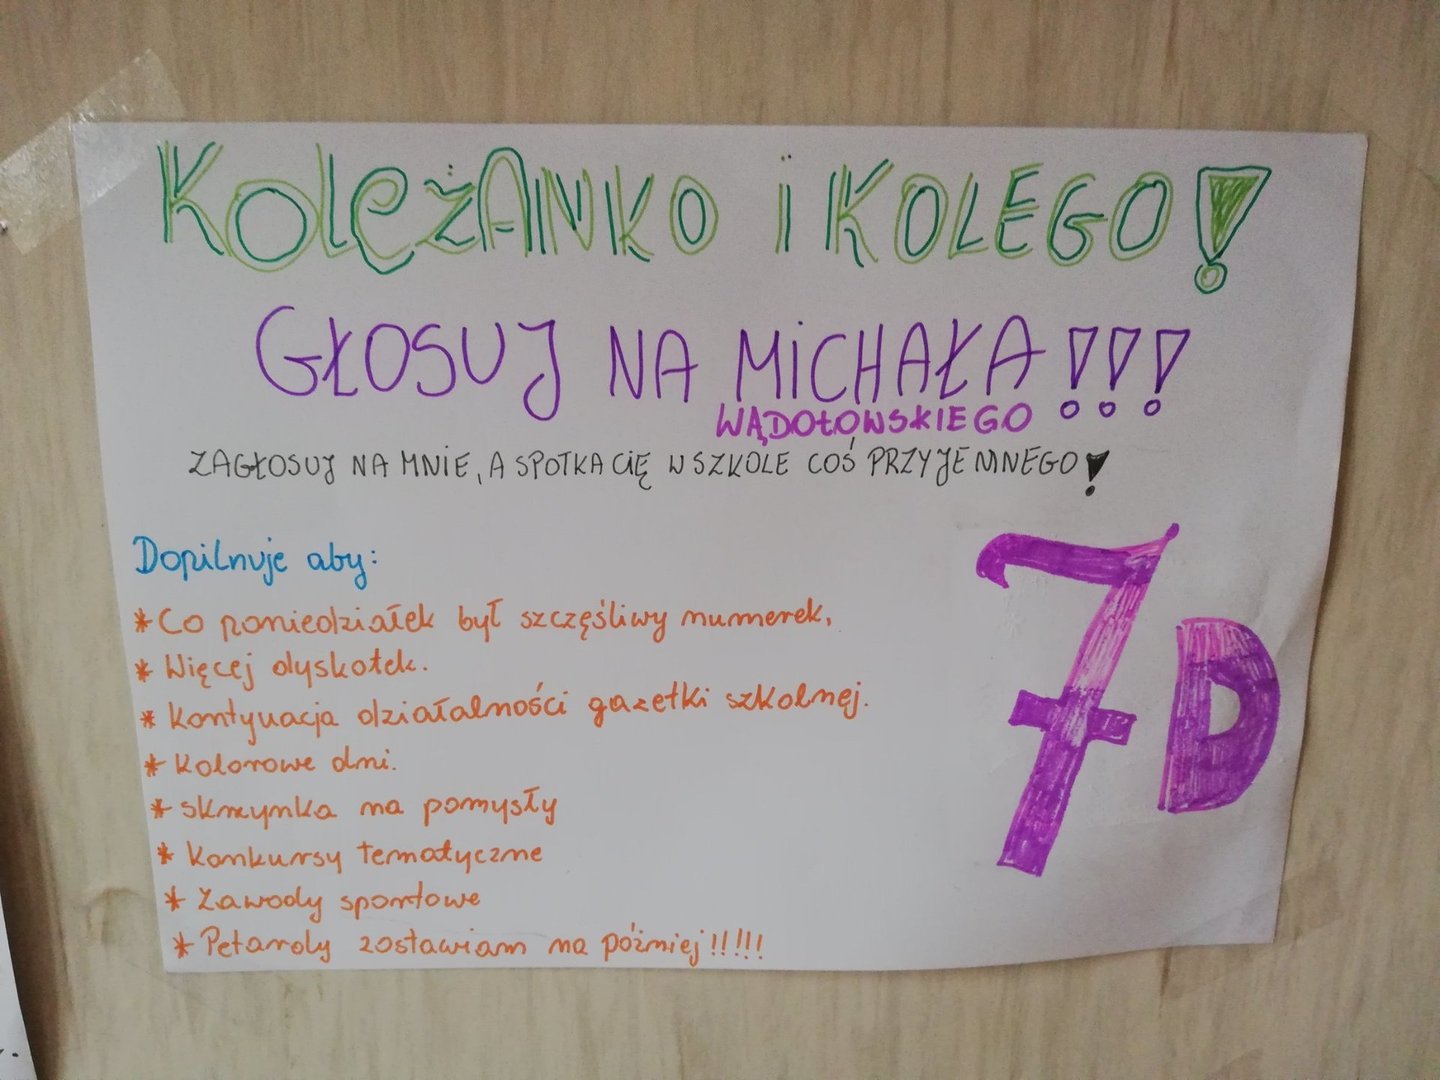 KOLĘŻANKO i KOLEGO!
GŁOSUJ NA MiCHAŁA!!!
WĄDOŁOWSKIEGO
ZAGŁOSUJ NA MNIE, A SPOTKA CIĘ W SZKOLE COŚ PRZYJEMNEGO!
Dopilnuje aby:
* Co poniedziałek był szczęśliwy numerek,
* Więcej dyskotek.
* Kontyuacja działalności gazetki szkolnej.
* Kolorowe dni.
* skrzynka na pomysły
* Konkursy tematyczne
* Zawody sportowe
* Petardy zostawiam na później!!!!!
7D